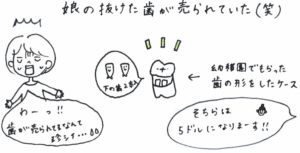 娘の抜けた歯が売られていた(笑)
下の歯2本
幼稚園でもらった
歯の形をしたケース
わーっ!!
歯が売られてるなんて
そちらは
5ドルになりまーす!!